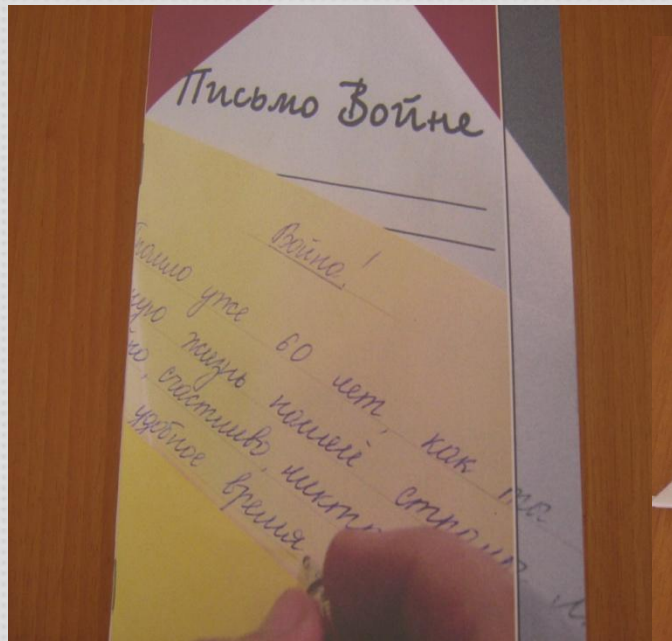 Письмо Войне
Война!
уже 60 лет, как та
жизнь нашей страны
счастливо, никто
удобное время